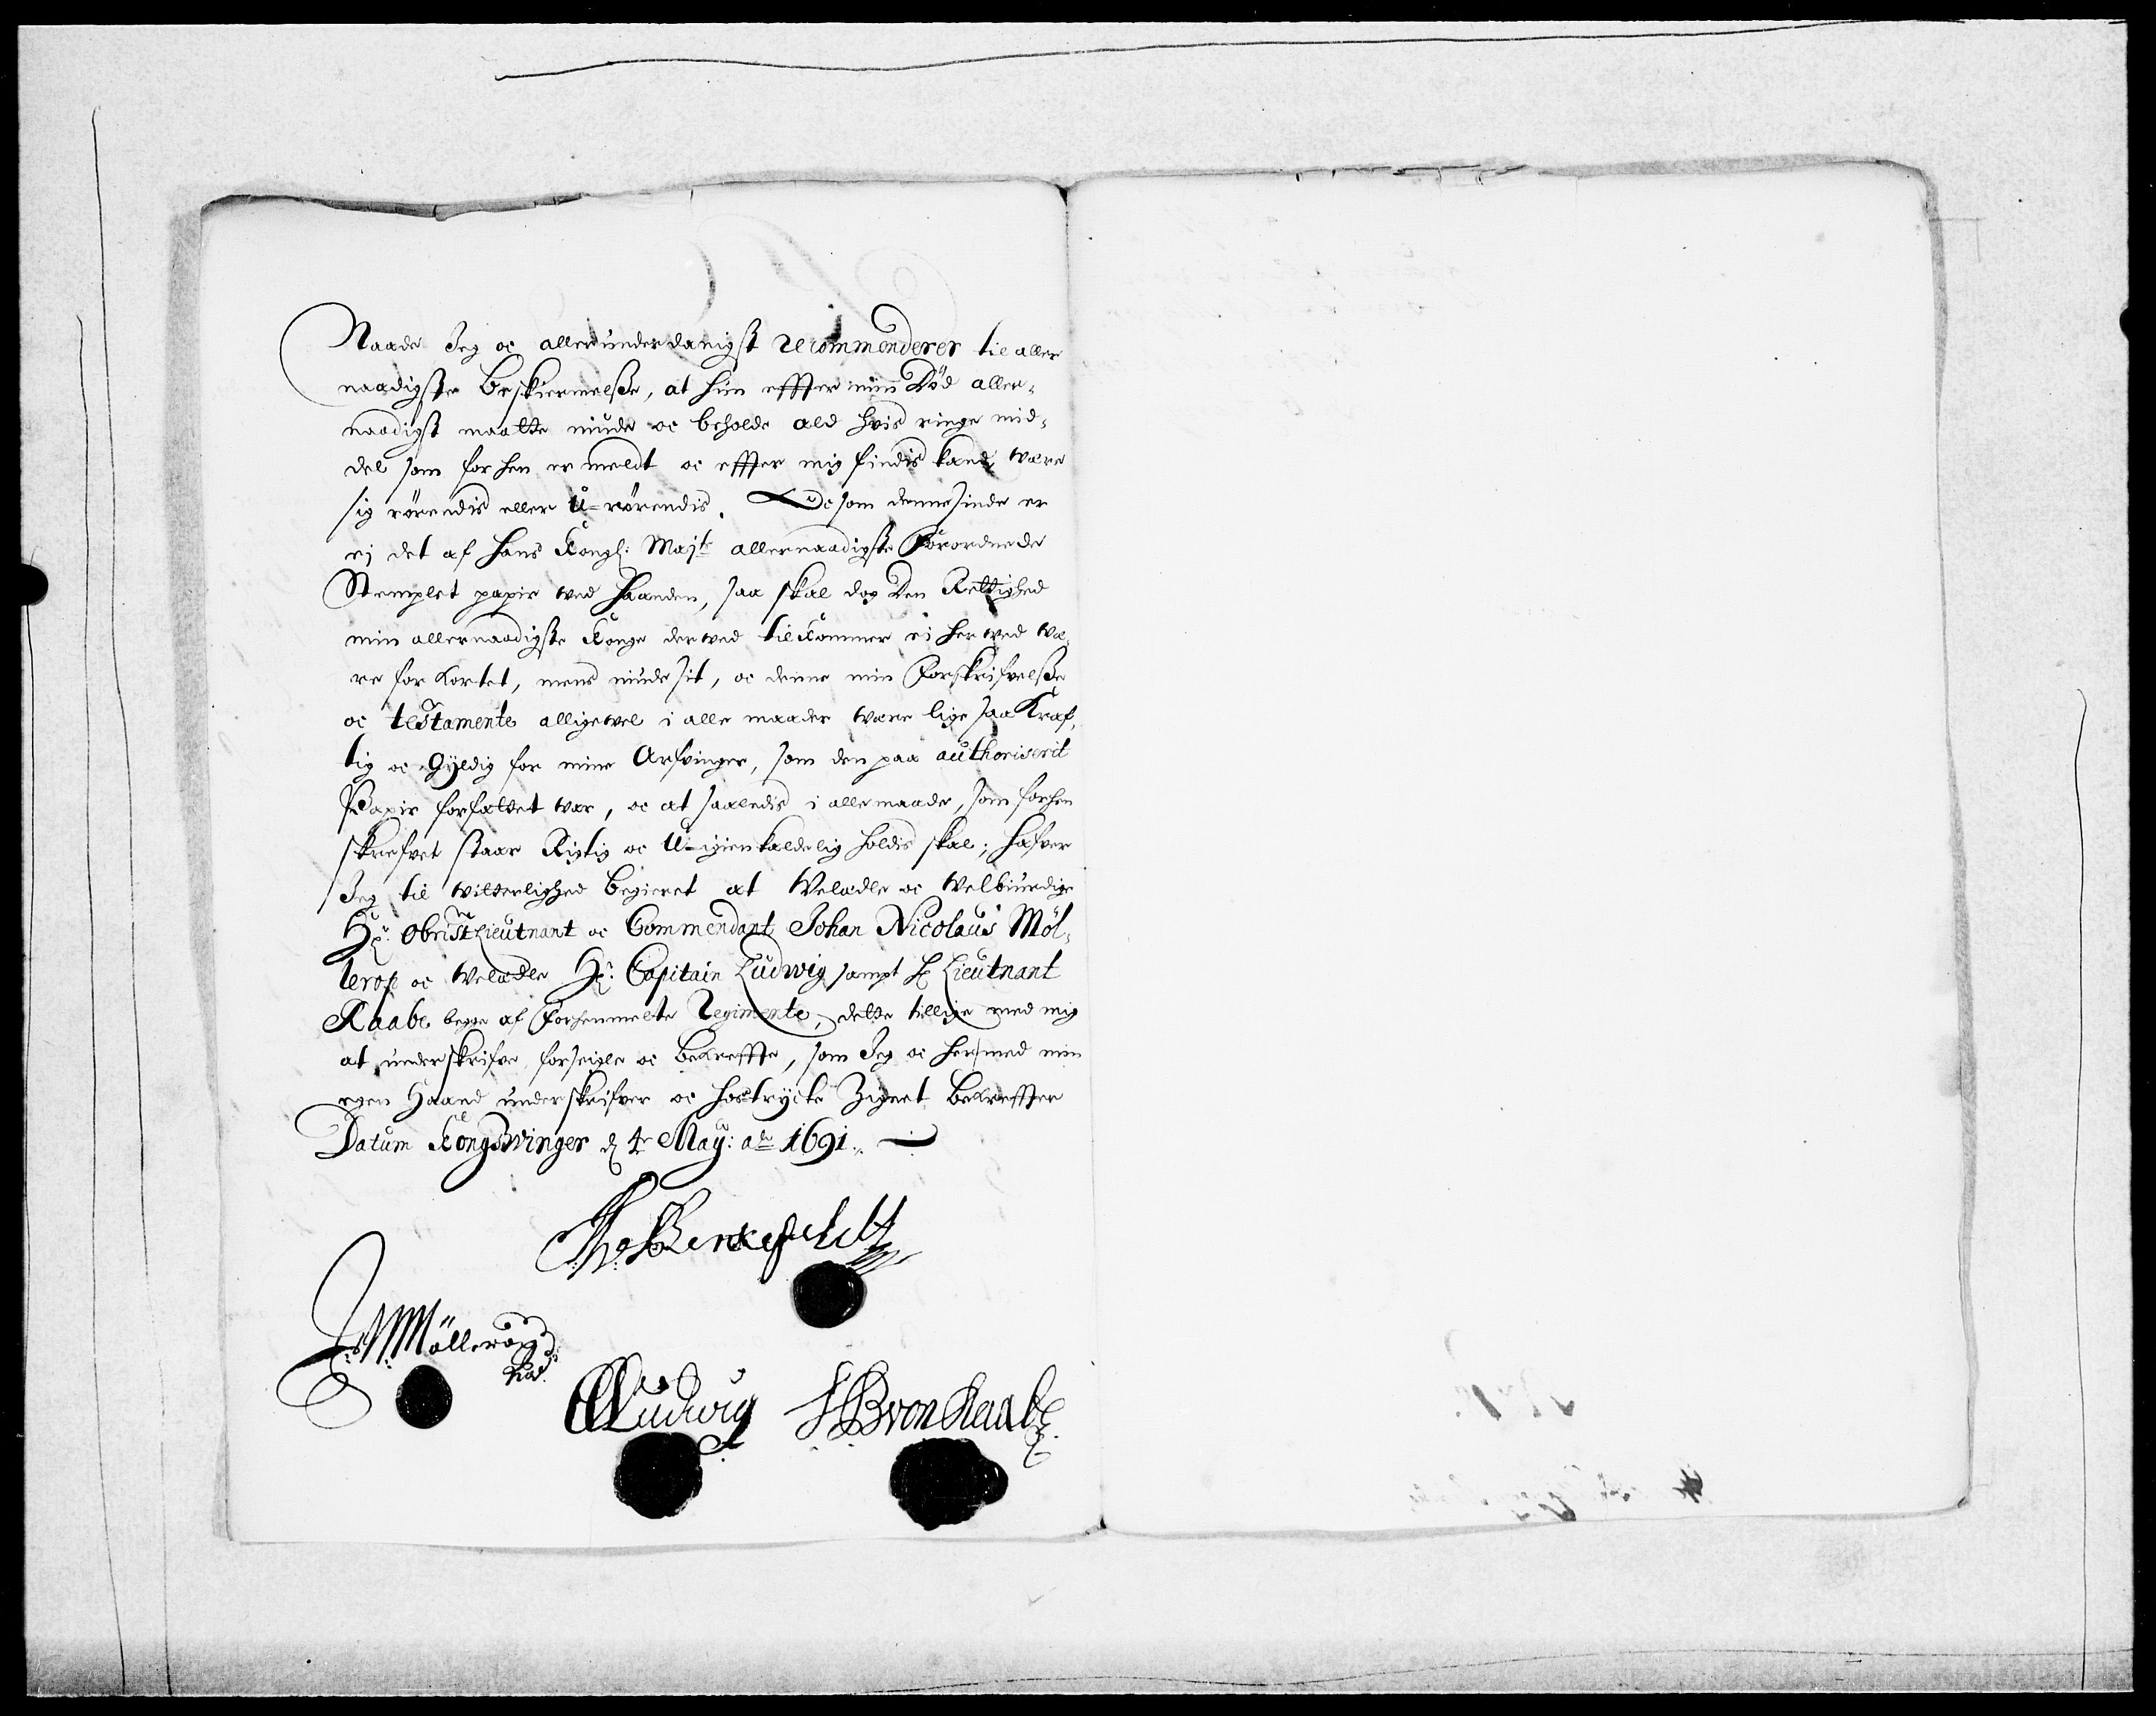 Naade Jeg oc allerunderdanigst recommenderer til aller
naadigste Beskiermelße, at hun effter min Död aller-
naadigst maatte niude oc beholde ald hvis ringe mid-
del som for hen er meldt oc effter mig findis kand, være
sig rörendis eller U-rörendis. Oc som denne sinde er
ej det af Hans Kongl: Majts allernaadigste Forordnede
Stemplet papir ved Haanden, saa skal dog Den Rettighed
min allernaadigste Konge derved tilkommer ei her ved væ-
re forkortet, mens niude sit, oc denne min Forskrifvelße
oc testamente alligevel i alle maader være lige saa Kraf-
tig oc Gyldig for mine Arfvinger, som den paa authoriserit
Papir forfattet var, oc at saaledis i alle maade, som forhen
skrefvet staar Rigtig oc U-igienkaldelig holdis skal; hafver
Jeg til vitterlighed begieret at Velædle oc Velbiurdige
Hr: Obrist Lieutnant oc Commendant Johan Nicolaus Möl-
lerop oc Velædle Hr: Capitain Ludwig sampt H Lieutnant
Raabe begge af Forhenmelte Regimente, dette tillige med mig
at underskrifve forseigle oc bekreffte, som Jeg oc her med min
egen Haand underskrifver oc hostryckte Zignet bekreffter
Datum Kongswinger d 4r May: ao 1691.
Tho Brenkefeldt
J: N: Mölleropp
CLudwig HB von Raabe